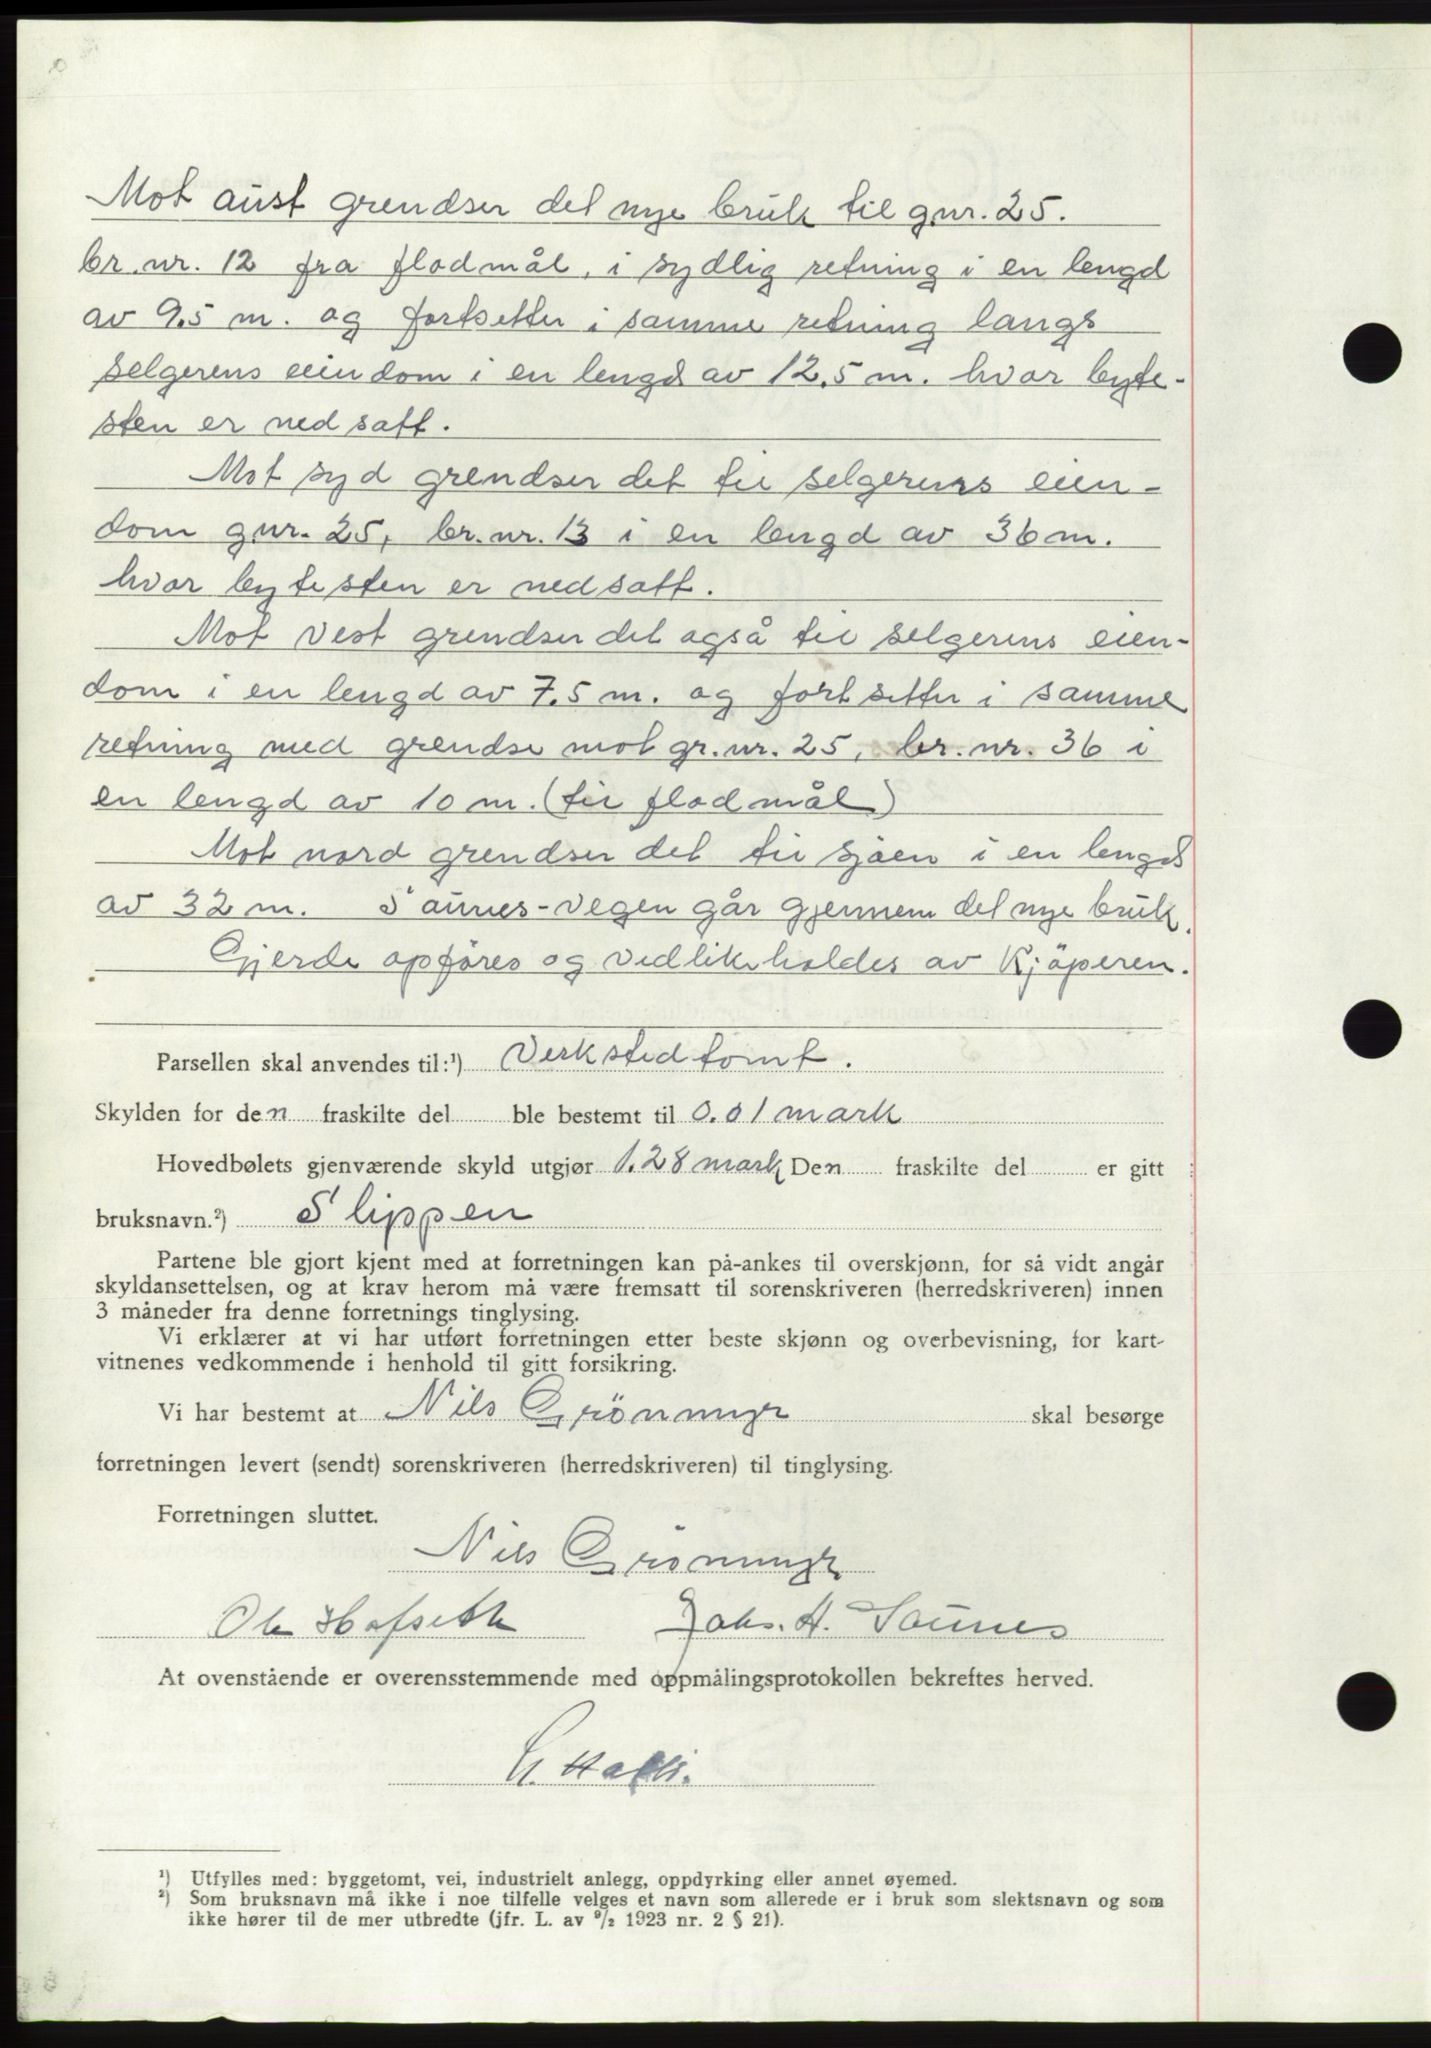 Mot aust grendser det nye bruk til gnr. 25.
br.nr. 12 fra flodmål, i sydlig retning i en lengd
av 9.5 m. og fortsetter i samme retning langs
selgerens eiendom i en lengd av 12.5 m. hvor byte-
sten er nedsatt.
Mot syd grendser det til selgerens eien-
dom gnr. 25, br.nr. 13 i en lengd av 36 m.
hvor bytesten er nedsatt.
Mot vest grendser det også til selgerens eien-
dom i en lengd av 7.5 m. og fortsetter i samme
retning med grendse mot gr.nr. 25, br.nr. 36 i
en lengd av 10 m. (til flodmål)
Mot nord grendser det til sjøen i en lengd
av 32 m. Saunes-vegen går gjennem det nye bruk.
Gjerde opföres og vedlikeholdes av Kjöperen.
Parsellen skal anvendes til:¹) Verkstedtomt.
Skylden for den fraskilte del ble bestemt til 0.01 mark
Hovedbølets gjenværende skyld utgjør 1.28 mark Den fraskilte del er gitt
bruksnavn.²) Slippen
Partene ble gjort kjent med at forretningen kan på-ankes til overskjønn, for så vidt angår
skyldansettelsen, og at krav herom må være fremsatt til sorenskriveren (herredskriveren) innen
3 måneder fra denne forretnings tinglysing.
Vi erklærer at vi har utført forretningen etter beste skjønn og overbevisning, for kart-
vitnenes vedkommende i henhold til gitt forsikring.
Vi har bestemt at Nils Grönmyr skal besørge
forretningen levert (sendt) sorenskriveren (herredskriveren) til tinglysing.
Forretningen sluttet.
Nils Grönmyr
Ole Hofseth Johs. A. Saunes
At ovenstående er overensstemmende med oppmålingsprotokollen bekreftes herved.
¹) Utfylles med: byggetomt, vei, industrielt anlegg, oppdyrking eller annet øyemed.
²) Som bruksnavn må ikke i noe tilfelle velges et navn som allerede er i bruk som slektsnavn og som
ikke hører til de mer utbredte (jfr. L. av ⁹/₂ 1923 nr. 2 § 21).